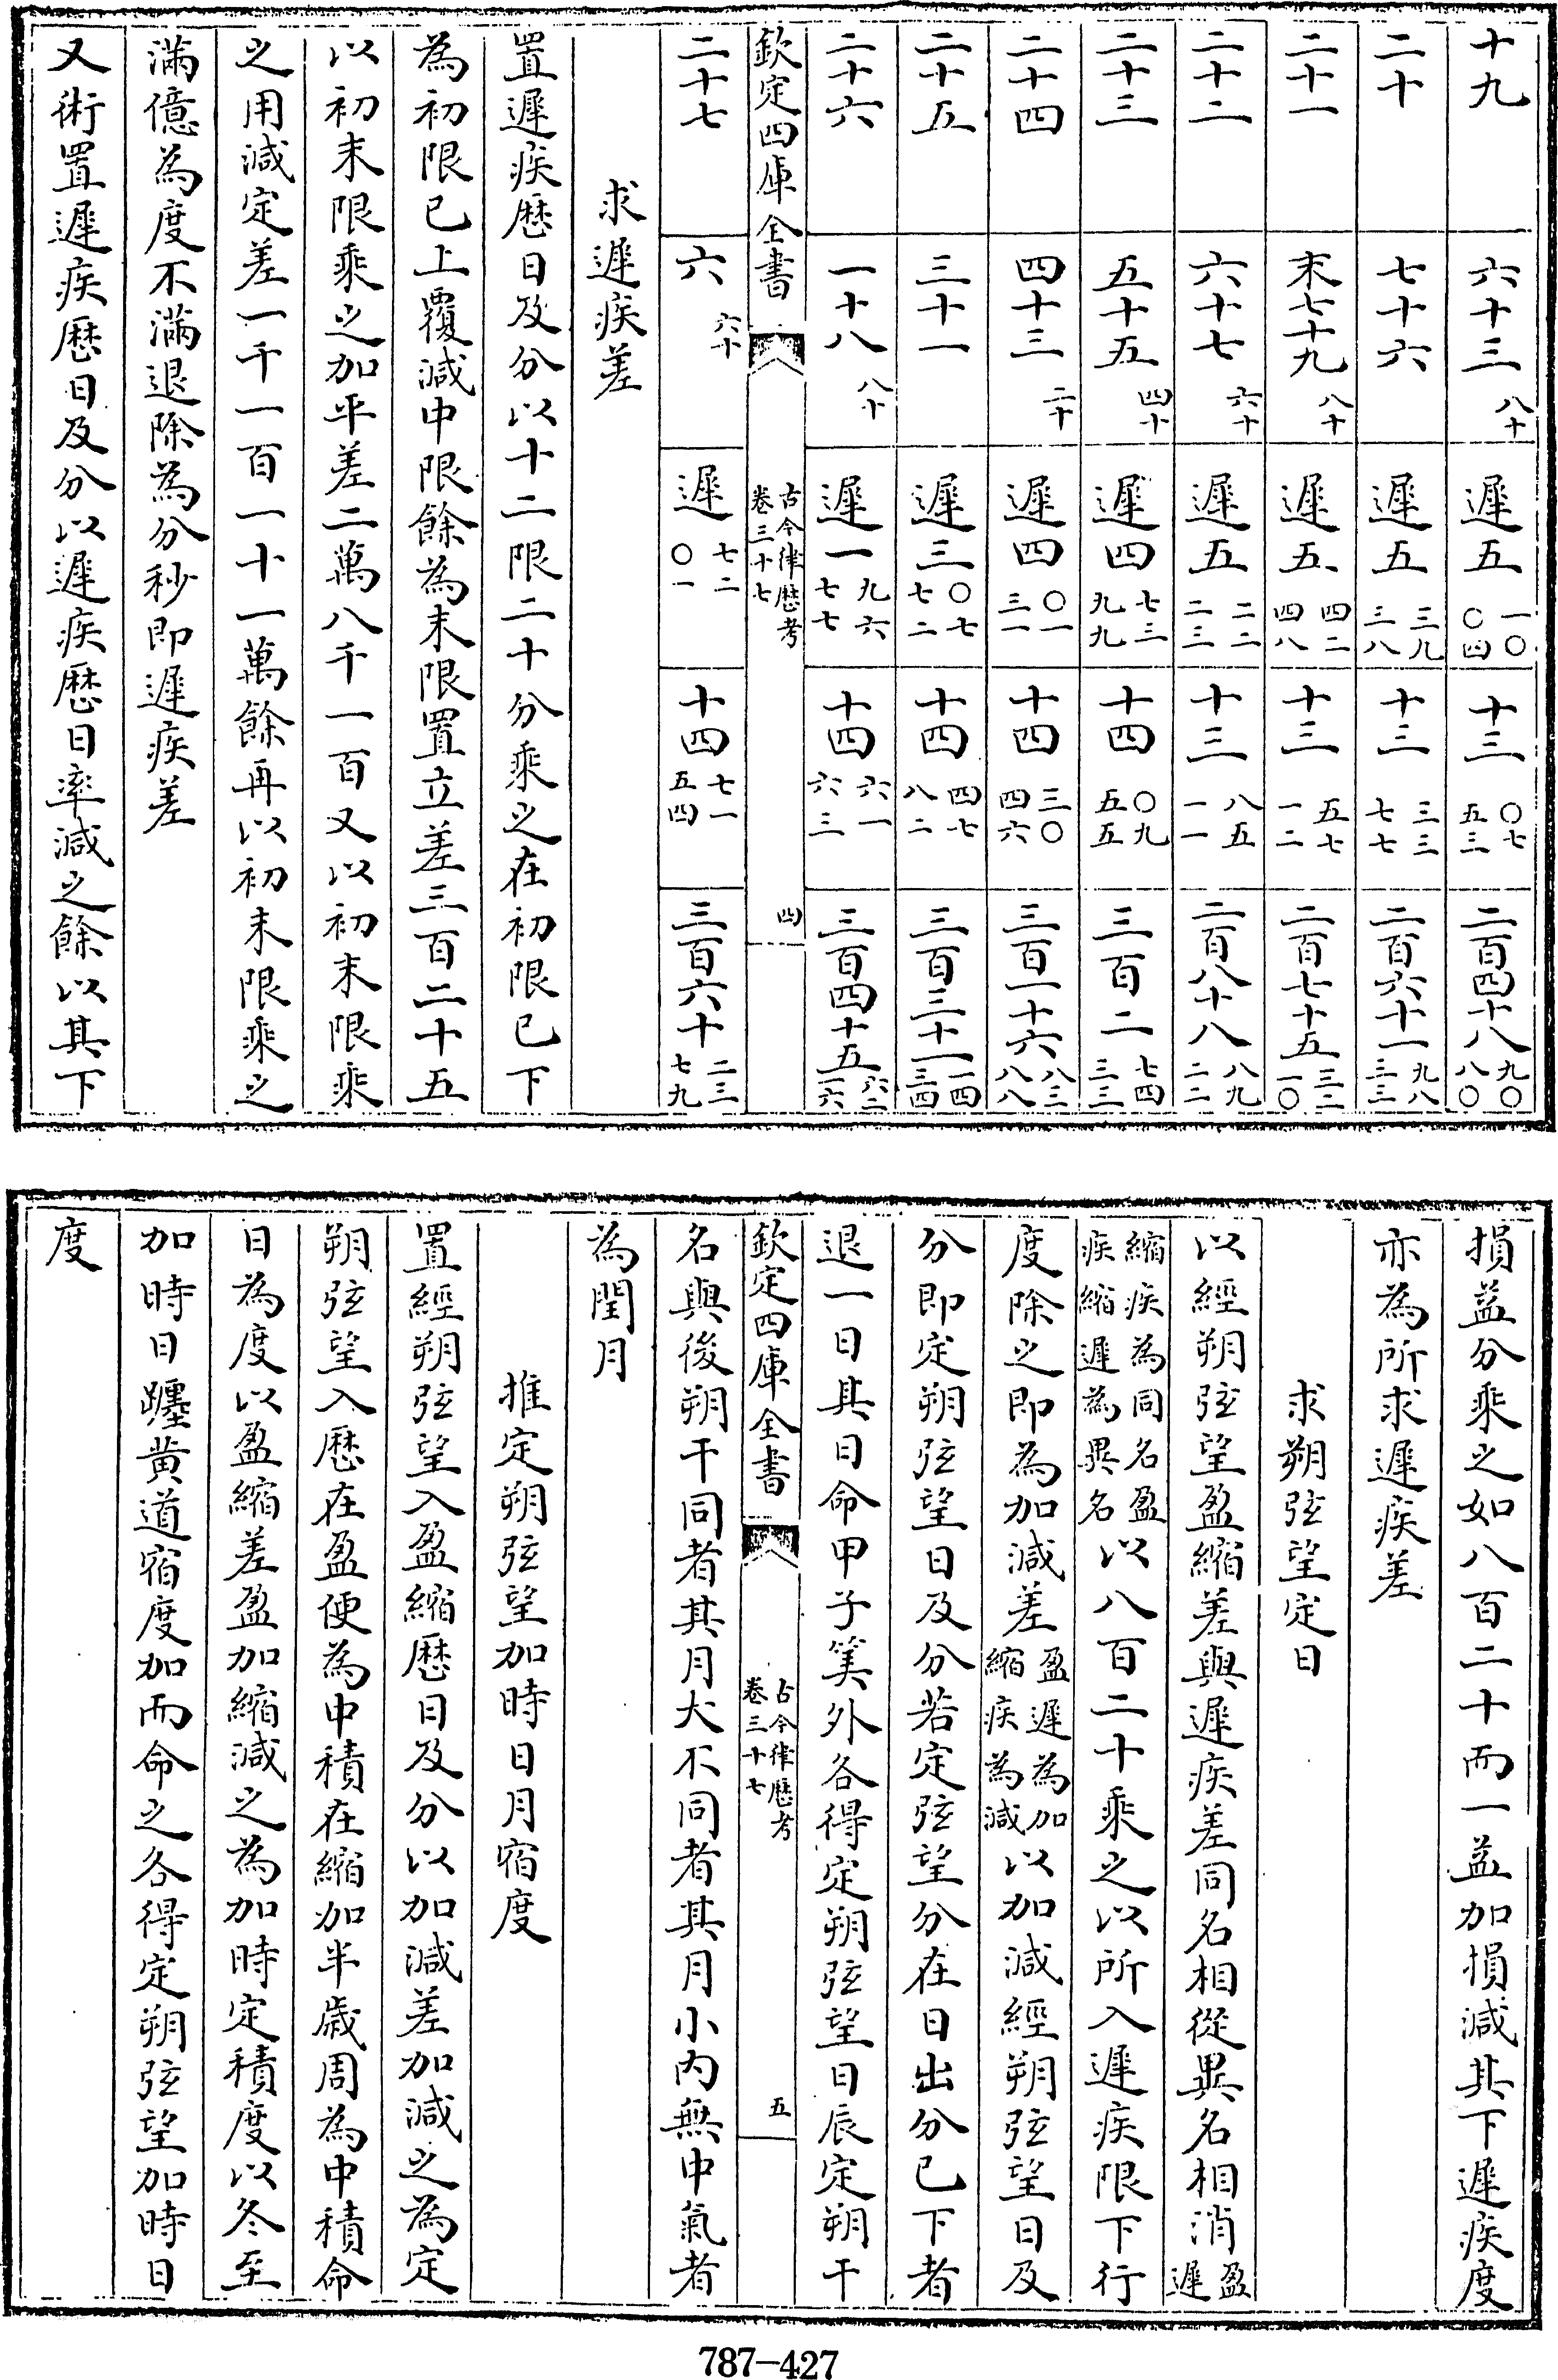 十九 六十三八十 遲五一〇〇四 十三〇七五三 二百四十八九〇八〇
二十 七十六 遲五三九三八 十三三三七七 二百六十一九八三三
二十一 末七十九八十 遲五四二四八 十三五七一二 二百七十五三二一〇
二十二 六十七六十 遲五二二二三 十三八五一一 二百八十八八九二二
二十三 五十五四十 遲四七三九九 十四〇九五五 三百二七四三三
二十四 四十三二十 遲四〇一三一 十四三〇四六 三百一十六八三八八
二十五 三十一 遲三〇七七二 十四四七八二 三百三十一一四三四
二十六 一十八八十 遲一九六七七 十四六一六三 三百四十五六二一六
欽定四庫全書 古今律歷考卷三十七 四
二十七 六六十 遲七二〇一 十四七一五四 三百六十二三七九
求遲疾差
置遲疾歷日及分以十二限二十分乘之在初限已下
為初限已上覆減中限餘為末限置立差三百二十五
以初末限乘之加平差二萬八千一百又以初末限乘
之用減定差一千一百一十一萬餘再以初末限乘之
滿億為度不滿退除為分秒即遲疾差
又術置遲疾歷日及分以遲疾歷日率減之餘以其下
損益分乘之如八百二十而一益加損減其下遲疾度
亦為所求遲疾差
求朔弦望定日
以經朔弦望盈縮差與遲疾差同名相從異名相消盈遲
縮疾為同名盈疾縮遲為異名以八百二十乘之以所入遲疾限下行
度除之即為加減差盈遲為加縮疾為減以加減經朔弦望日及
分即定朔弦望日及分若定弦望分在日出分已下者
退一日其日命甲子筭外各得定朔弦望日辰定朔干
欽定四庫全書 古今律歷考卷三十七 五
名與後朔干同者其月大不同者其月小內無中氣者
為閏月
推定朔弦望加時日月宿度
置經朔弦望入盈縮歷日及分以加減差加減之為定
朔弦望入歷在盈便為中積在縮加半歲周為中積命
日為度以盈縮差盈加縮減之為加時定積度以冬至
加時日躔黃道宿度加而命之各得定朔弦望加時日
度
787-427